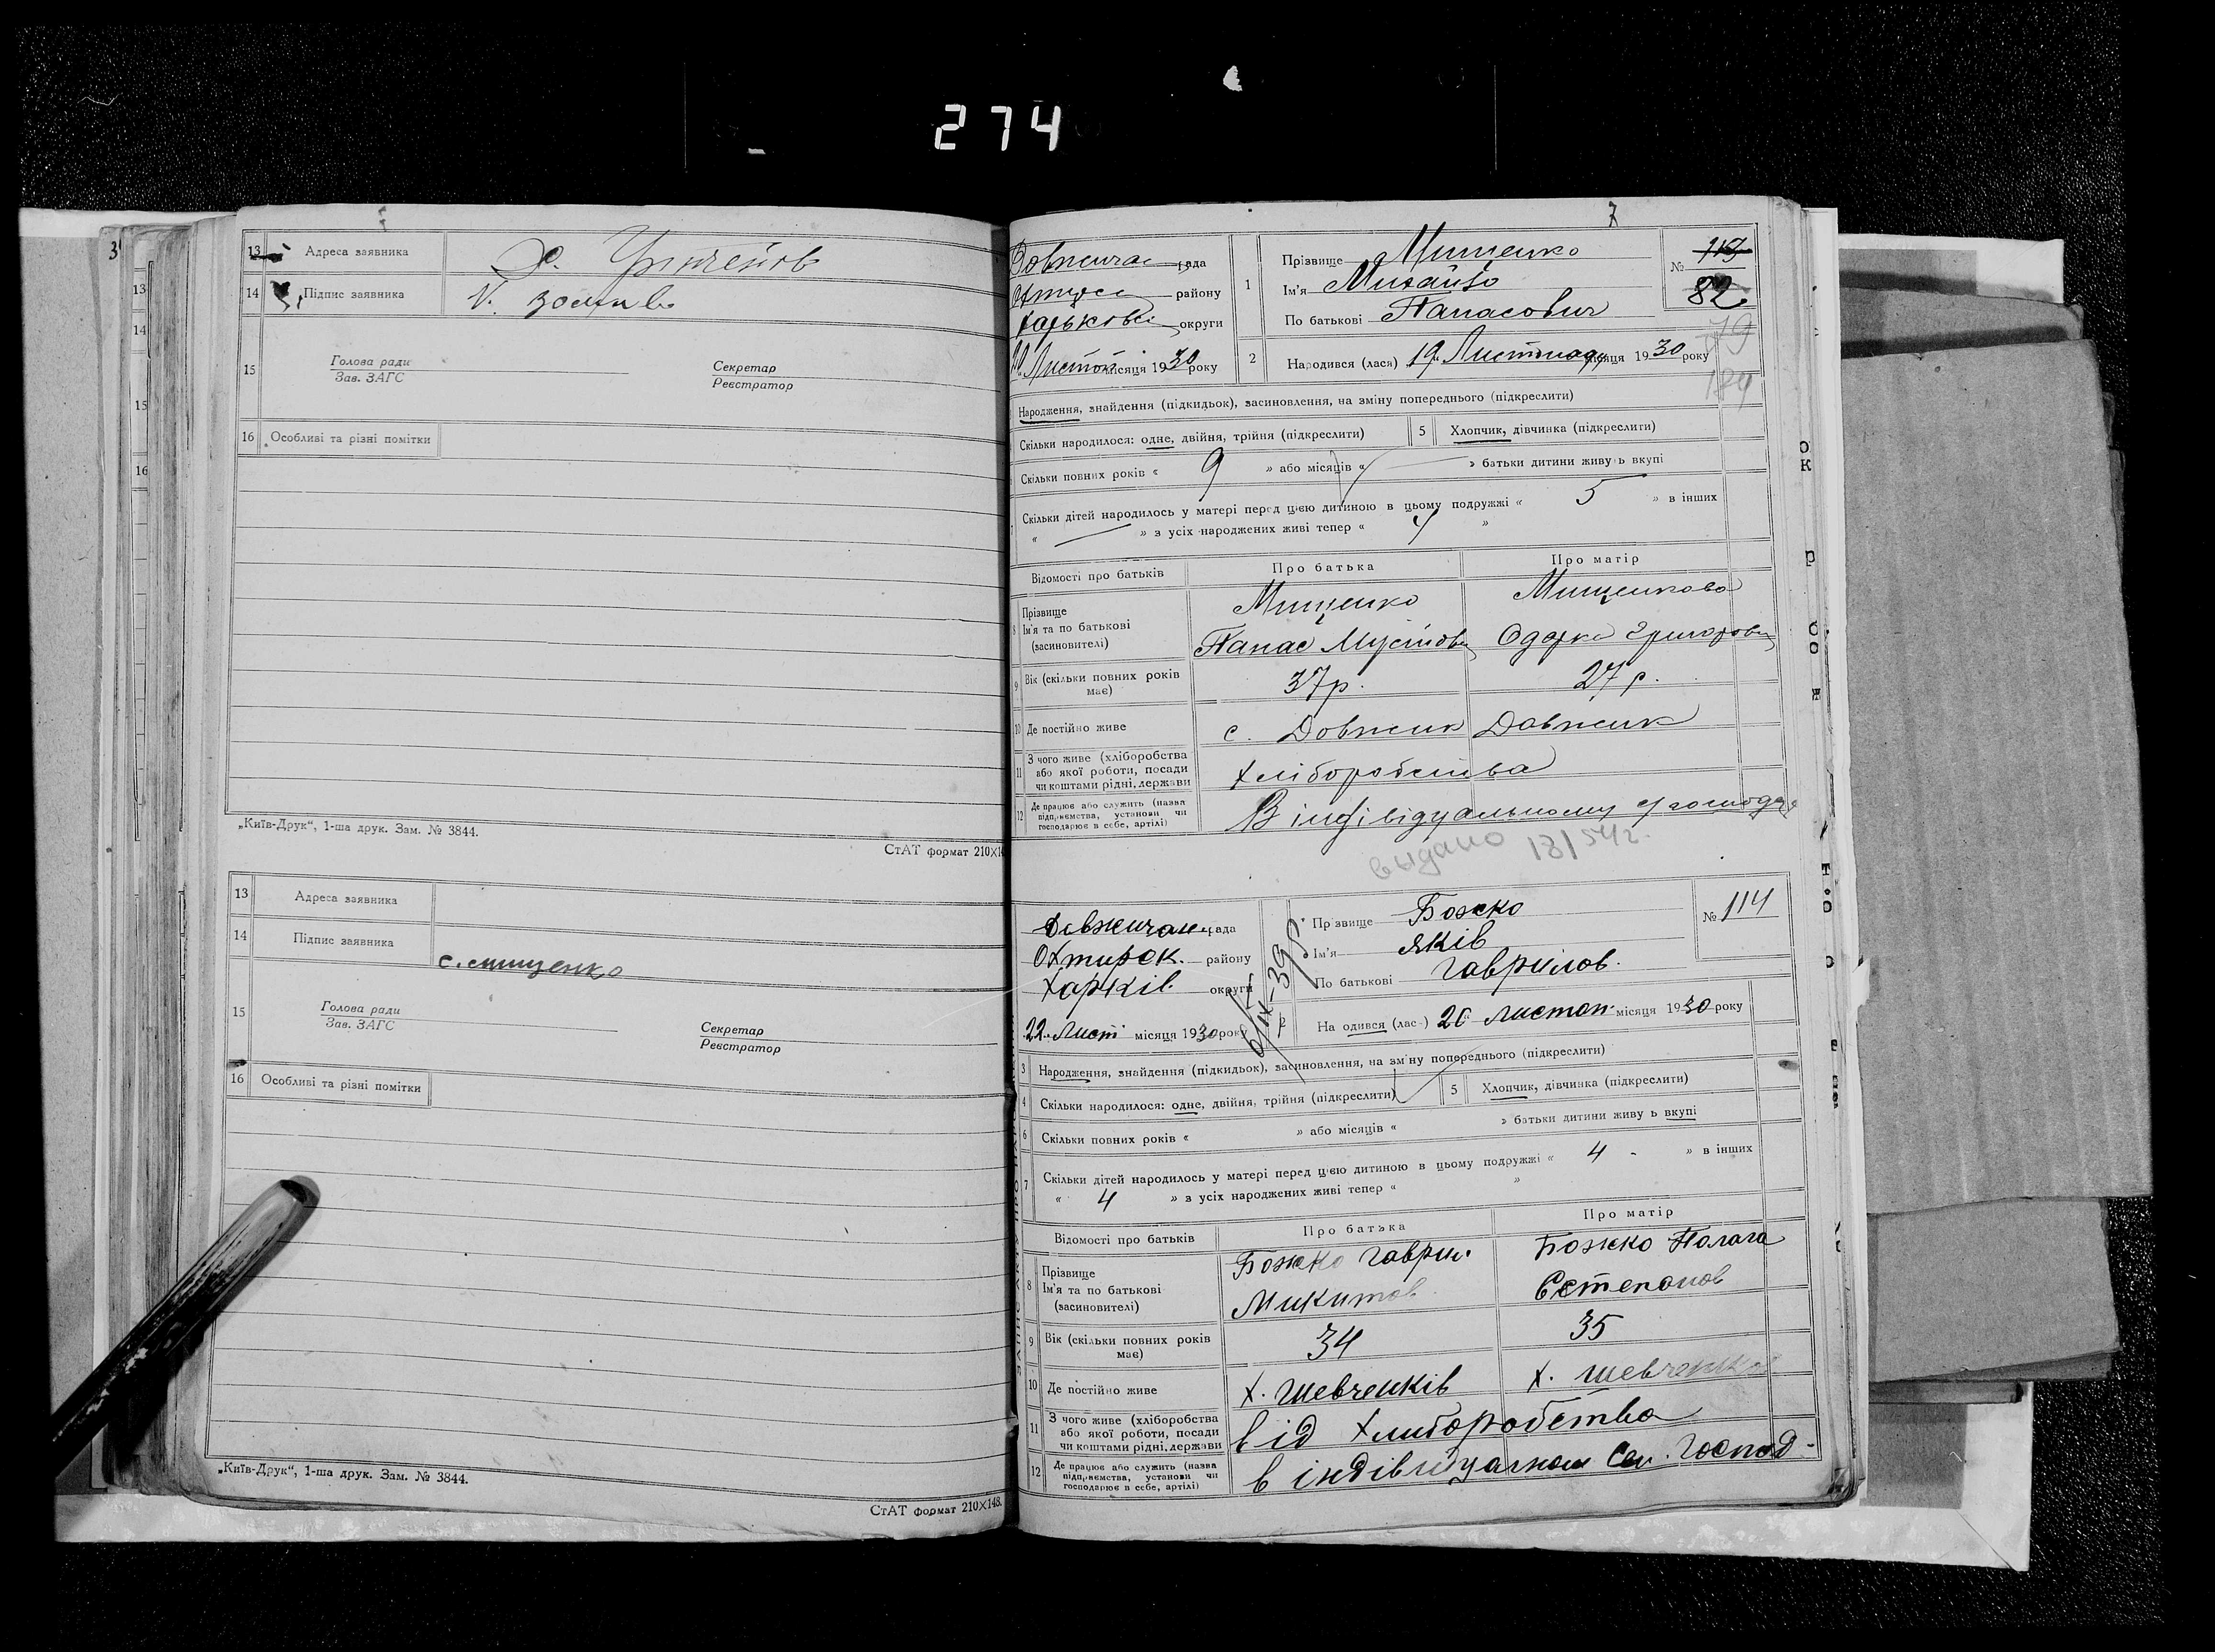 274
13 Адреса заявника
14 Підпис заявника
15 Голова ради
Зав. ЗАГС
Секретар
Реєстратор
16 Особливі та різні помітки
„Київ-Друк“, 1-ша друк. Зам. № 3844.
СтАТ формат 210×14
13 Адреса заявника
14 Підпис заявника
с. мищенко
15 Голова ради
Зав. ЗАГС
Секретар
Реєстратор
16 Особливі та різні помітки
„Київ-Друк“, 1-ша друк. Зам. № 3844.
СтАТ формат 210×148.
7
рада
району
округи
Листоп місяця 1930 року
1 Прізвище Мищенко
Ім'я Михайло
По батькові Панасович
№ 113
82
79
184
2 Народився (лася) 19 Листопада місяця 1930 року
Народження, знайдення (підкидьок), засиновлення, на зміну попереднього (підкреслити)
Скільки народилося: одне, двійня, трійня (підкреслити) 5 Хлопчик, дівчинка (підкреслити)
Скільки повних років « 9 » або місяців « » батьки дитини живуть вкупі
Скільки дітей народилось у матері перед цією дитиною в цьому подружжі « 5 » в інших
« — » з усіх народжених живі тепер « 4 »
Відомості про батьків Про батька Про матір
8 Прізвище
Ім'я та по батькові
(засиновителі)
Мищенко Мищенкова
Панас Одарка Григоровн
9 Вік (скільки повних років
має)
37 р. 27 р.
10 Де постійно живе с. Довжик Довжик
11 З чого живе (хліборобства
або якої роботи, посади
чи коштами рідні, держави
Хліборобства
12 Де працює або служить (назва
підприємства, установи чи
господарює в себе, артілі)
В індівідуальному
выдано 13/54г.
Довжичан рада
Охтирск. району
Харків округи
22 Лист місяця 1930 року
6/IX-39р
Прізвище Божко
Ім'я Яків
По батькові Гаврилов.
№ 114
2 Народився (лас-) 20 листоп. місяця 1930 року
3 Народження, знайдення (підкидьок), засиновлення, на зміну попереднього (підкреслити)
4 Скільки народилося: одне, двійня, трійня (підкреслити) 5 Хлопчик, дівчинка (підкреслити)
6 Скільки повних років « » або місяців « » батьки дитини живуть вкупі
7 Скільки дітей народилось у матері перед цією дитиною в цьому подружжі « 4 - » в інших
« 4 » з усіх народжених живі тепер « »
Відомості про батьків Про батька Про матір
8 Прізвище
Ім'я та по батькові
(засиновителі)
Божко Гаврил. Божко Палага
Микитов Сстепанов
9 Вік (скільки повних років
має)
34 35
10 Де постійно живе х. Шевченків х. Шевченків
11 З чого живе (хліборобства
або якої роботи, посади
чи коштами рідні, держави
від хлиборобства
12 Де працює або служить (назва
підприємства, установи чи
господарює в себе, артілі)
в Господ-